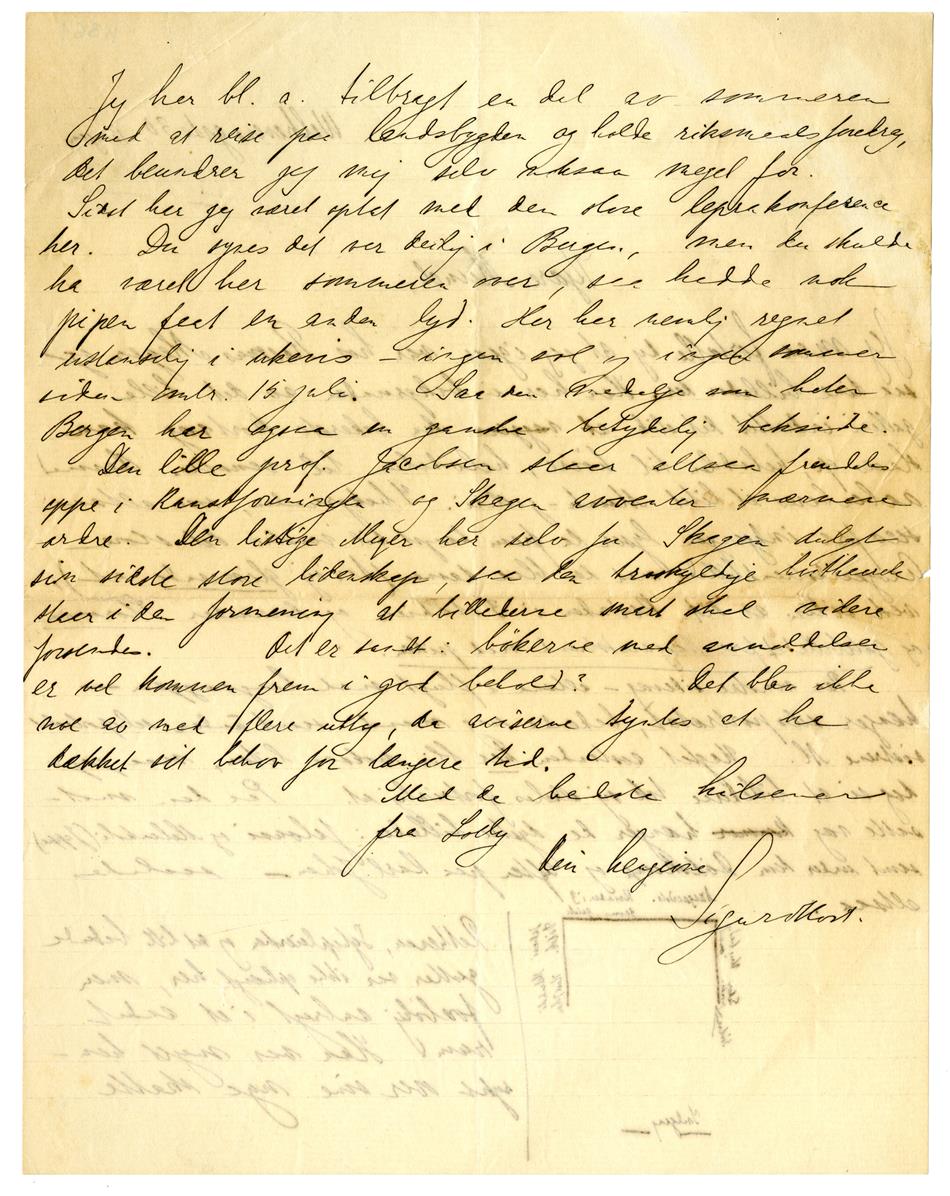 Jeg har bl. a. tilbragt en del av sommeren
med at reise paa landsbygden og holde riksmaalsforedrag,
det beundrer jeg mig selv oksaa meget for.
Sidst har jeg været optat med den store leprakonference
her. Du synes det var deilig i Bergen, men du skulde
ha været her sommeren over, saa hadde nok
pipen faat en anden lyd. Her har nemlig regnet
ustanselig i ukevis – ingen sol og ingen sommer
siden omtr. 15 juli. Saa den medalje som heter
Bergen har ogsaa en ganske betydelig bakside.
Den lille prof. Jacobsen staar altsaa fremdeles
oppe i Kunstforeningen og Skagen avventer nærmere
ordre. Den listige Meyer har selv for Skagen dulgt
sin sidste store lidenskap, saa den troskyldige
staar i den formening at billederne snart skal videre
forsendes. Det er sandt: bökerne med anmeldelser
er vel kommen frem i god behold? Det blev ikke
noe av med flere uttog, da aviserne syntes at ha
dækket sit behov for længere tid.
Med de bedste hilsener
fra Lolly
Din hengivne
Sigurd Höst.